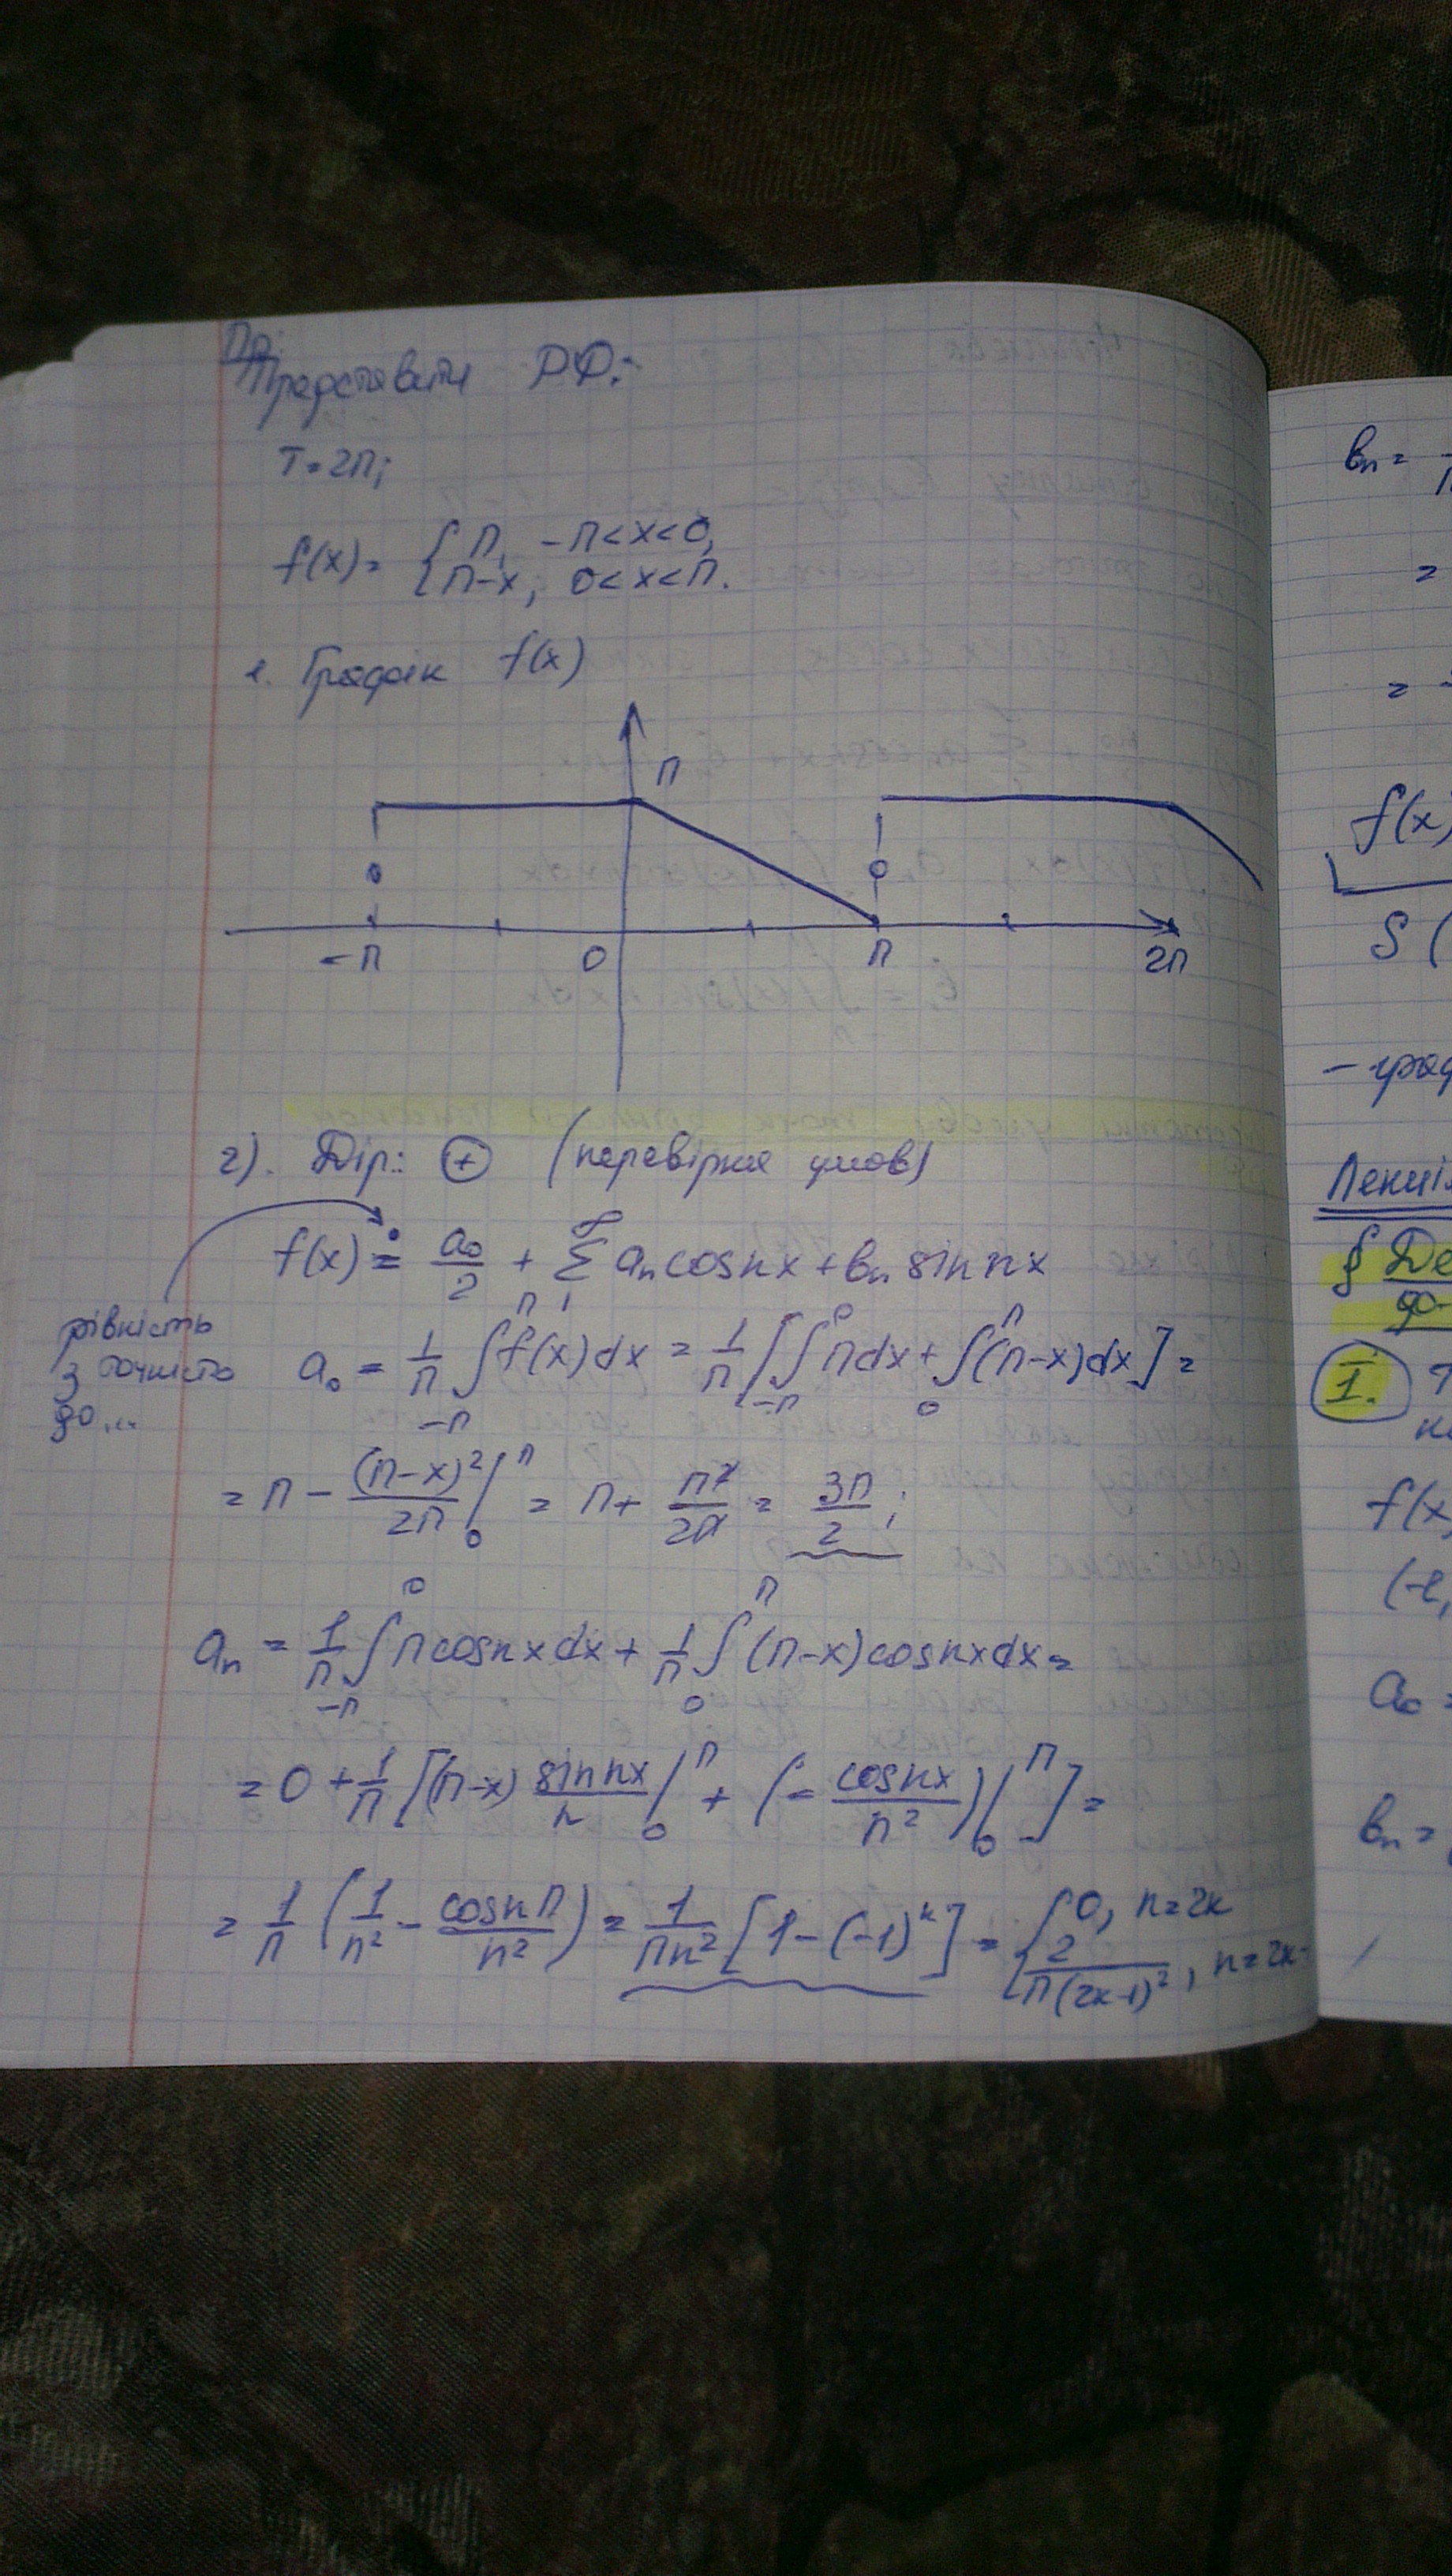 Пр:
Представити РФ:
T=2π;
f(x)= { π, -π<x<0,
π-x, 0<x<π.
1. Графік f(x)
π
-π 0 π 2π
2). Дір.: ⊕ (перевірка умов)
f(x) ≐ a₀/2 + ∑₁^∞ aₙ cos nx + bₙ sin nx
рівність
з точністю
до...
a₀ = 1/π ∫_{-π}^{π} f(x)dx = 1/π [∫_{-π}^{0} πdx + ∫_{0}^{π} (π-x)dx] =
= π - (π-x)²/2π |₀^π = π + π²/2π = 3π/2;
aₙ = 1/π ∫_{-π}^{0} π cos nx dx + 1/π ∫_{0}^{π} (π-x) cos nx dx =
= 0 + 1/π [(π-x) sin nx/n |₀^π + (- cos nx/n²) |₀^π] =
= 1/π (1/n² - cos nπ/n²) = 1/πn² [1-(-1)ⁿ] = { 0, n=2k
2/π(2k-1)², n=2k-
bₙ =
=
=
f(x)
S (
- граф
§ Де
I.
f(x
(-l,
a₀ =
bₙ =